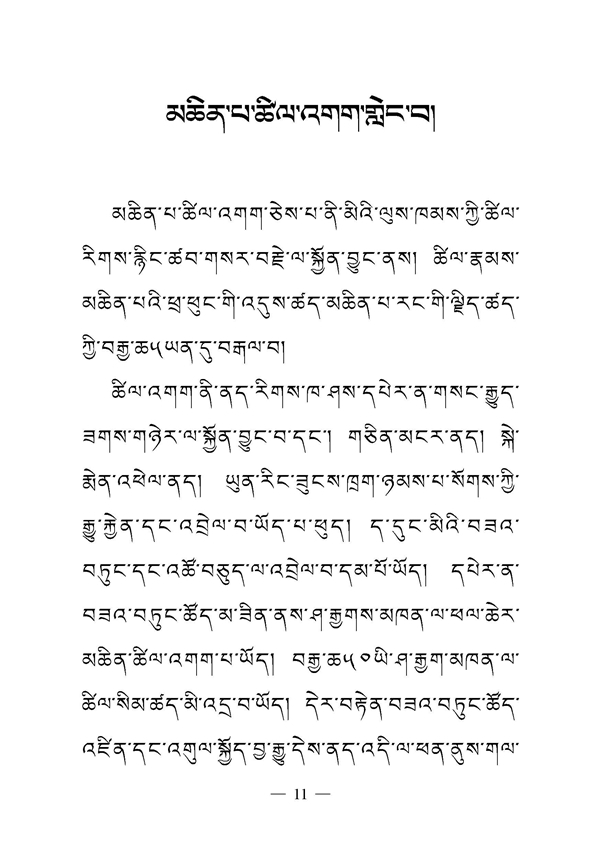 མཆིན་པ་ཚིལ་འགག་གླེང་བ།
མཆིན་པ་ཚིལ་འགག་ཅེས་པ་ནི་མིའི་ལུས་ཁམས་ཀྱི་ཚིལ་
རིགས་རྙིང་ཚབ་གསར་བརྗེ་ལ་སྐྱོན་བྱུང་ནས། ཚིལ་རྣམས་
མཆིན་པའི་ཕྲ་ཕུང་གི་འདུས་ཚད་མཆིན་པ་རང་གི་ལྗིད་ཚད་
ཀྱི་བརྒྱ་ཆ༥ཡན་དུ་བརྒལ་བ།
ཚིལ་འགག་ནི་ནད་རིགས་ཁ་ཤས་དཔེར་ན་གསང་རྒྱུད་
ཟགས་གཉེར་ལ་སྐྱོན་བྱུང་བ་དང་། གཅིན་མངར་ནད། སྐེ་
རྨེན་འཕེལ་ནད། ཡུན་རིང་ཟུངས་ཁྲག་ཉམས་པ་སོགས་ཀྱི་
རྒྱུ་རྐྱེན་དང་འབྲེལ་བ་ཡོད་པ་ཕུད། ད་དུང་མིའི་བཟའ་
བཏུང་དང་འཚོ་བཅུད་ལ་འབྲེལ་བ་དམ་པོ་ཡོད། དཔེར་ན་
བཟའ་བཏུང་ཚོད་མ་ཟིན་ནས་ཤ་རྒྱགས་མཁན་ལ་ཕལ་ཆེར་
མཆིན་ཚིལ་འགག་པ་ཡོད། བརྒྱ་ཆ༥༠ཡི་ཤ་རྒྱག་མཁན་ལ་
ཚིལ་སིམ་ཚད་མི་འདྲ་བ་ཡོད། དེར་བརྟེན་བཟའ་བཏུང་ཚོད་
འཛིན་དང་འགུལ་སྐྱོད་བྱ་རྒྱུ་དེས་ནད་འདི་ལ་ཕན་ནུས་གལ་
— 11 —